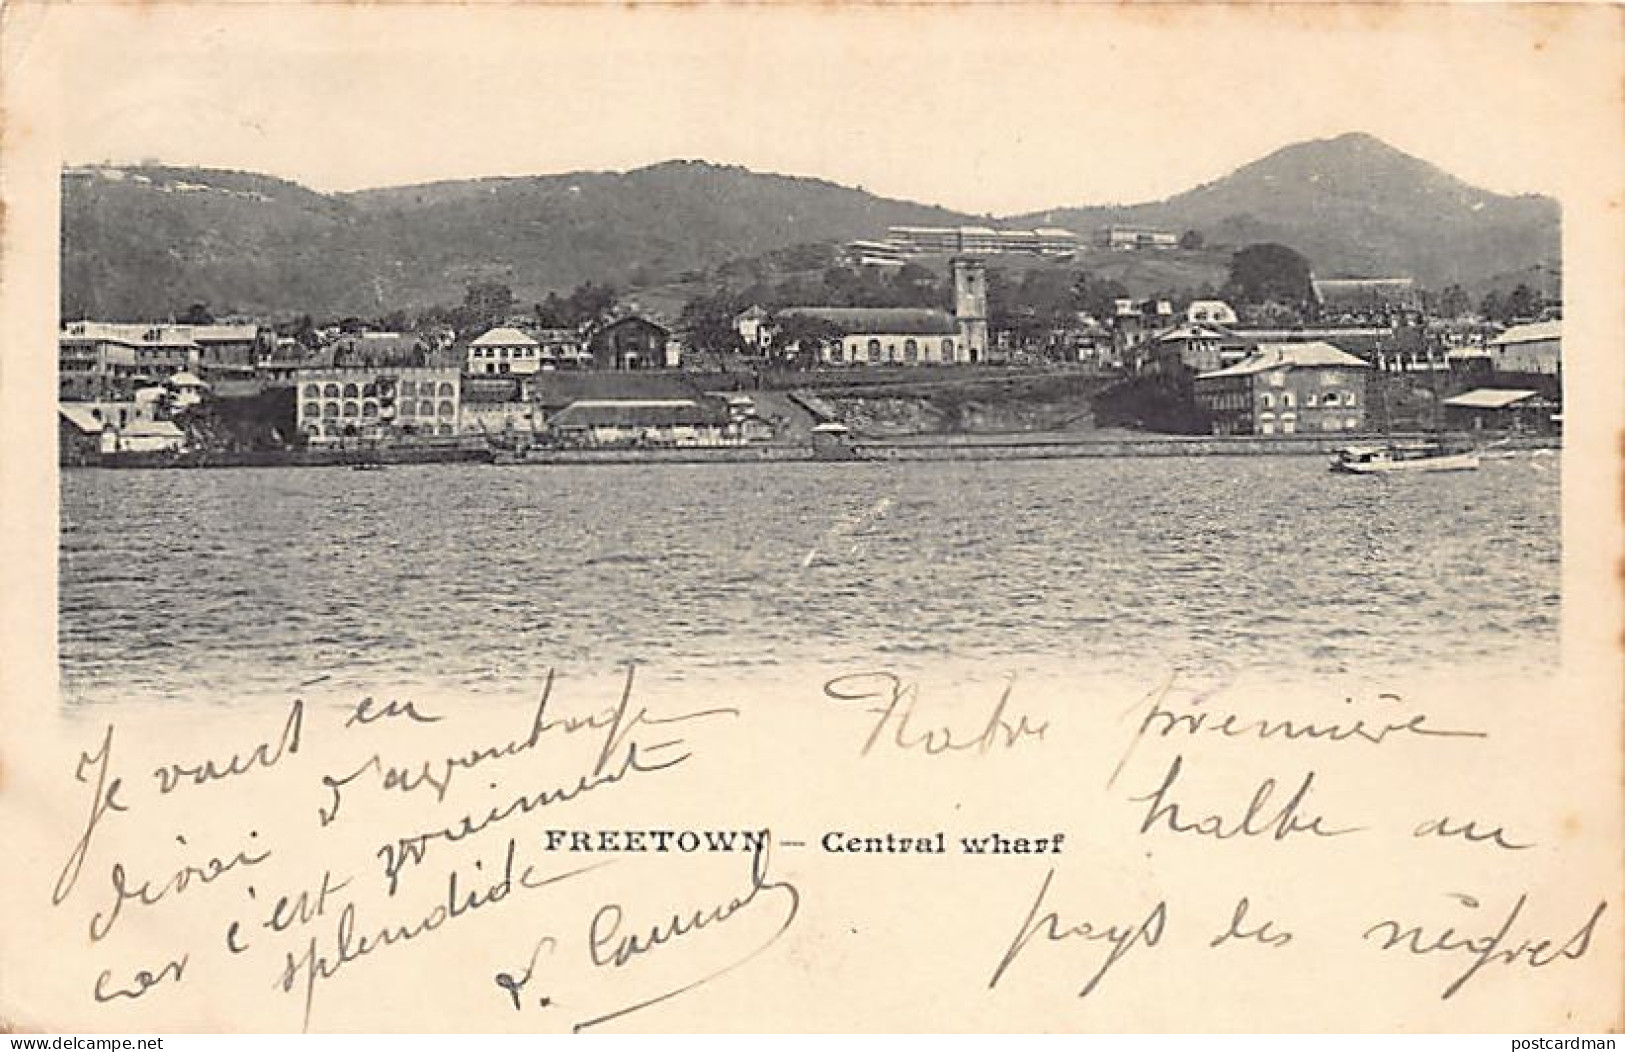 Je vous en
dirai d'avantage
car c'est vraiment
splendide
Notre première
halte au
pays des nègres
FREETOWN — Central wharf
Delcampe.net
postcardman